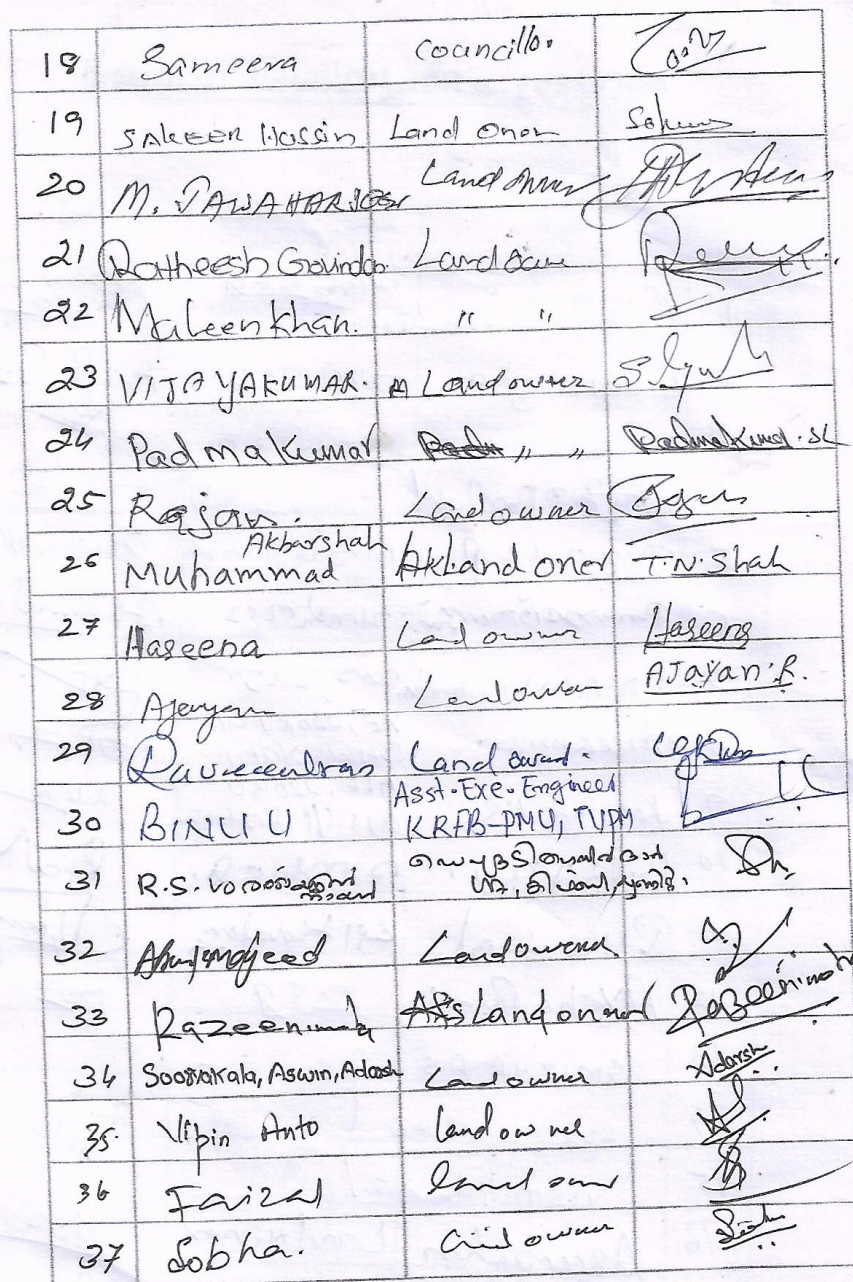 18 Sameera Councillor
19 SAKEER Hussin Land oner Sakeer
20 M. JAWAHAR Land owner
21 Ratheesh Govindan Land owner
22 Maleenkhan. " "
23 VIJAYAKUMAR. Land owner
24 Padmakumar " " Padmakumar. SL
25 Rajan. Land owner
26 Muhammad Akbarshah Land oner T.N. Shah
27 Haseena Land owner Haseena
28 Ajayan Land owner AJayan. R.
29 Raveendran Land owner
30 BINU U Asst. Exe. Engineer
KRFB-PMU, TVPM
31 R.S.
32 Abdulmajeed Land owner
33 Razeenimol Land onner Razeenimol
34 Sooryakala, Aswin, Adarsh Land owner Adarsh
35. Vipin Anto land owner
36 Faizal land owner
37 Sobha. Land owner